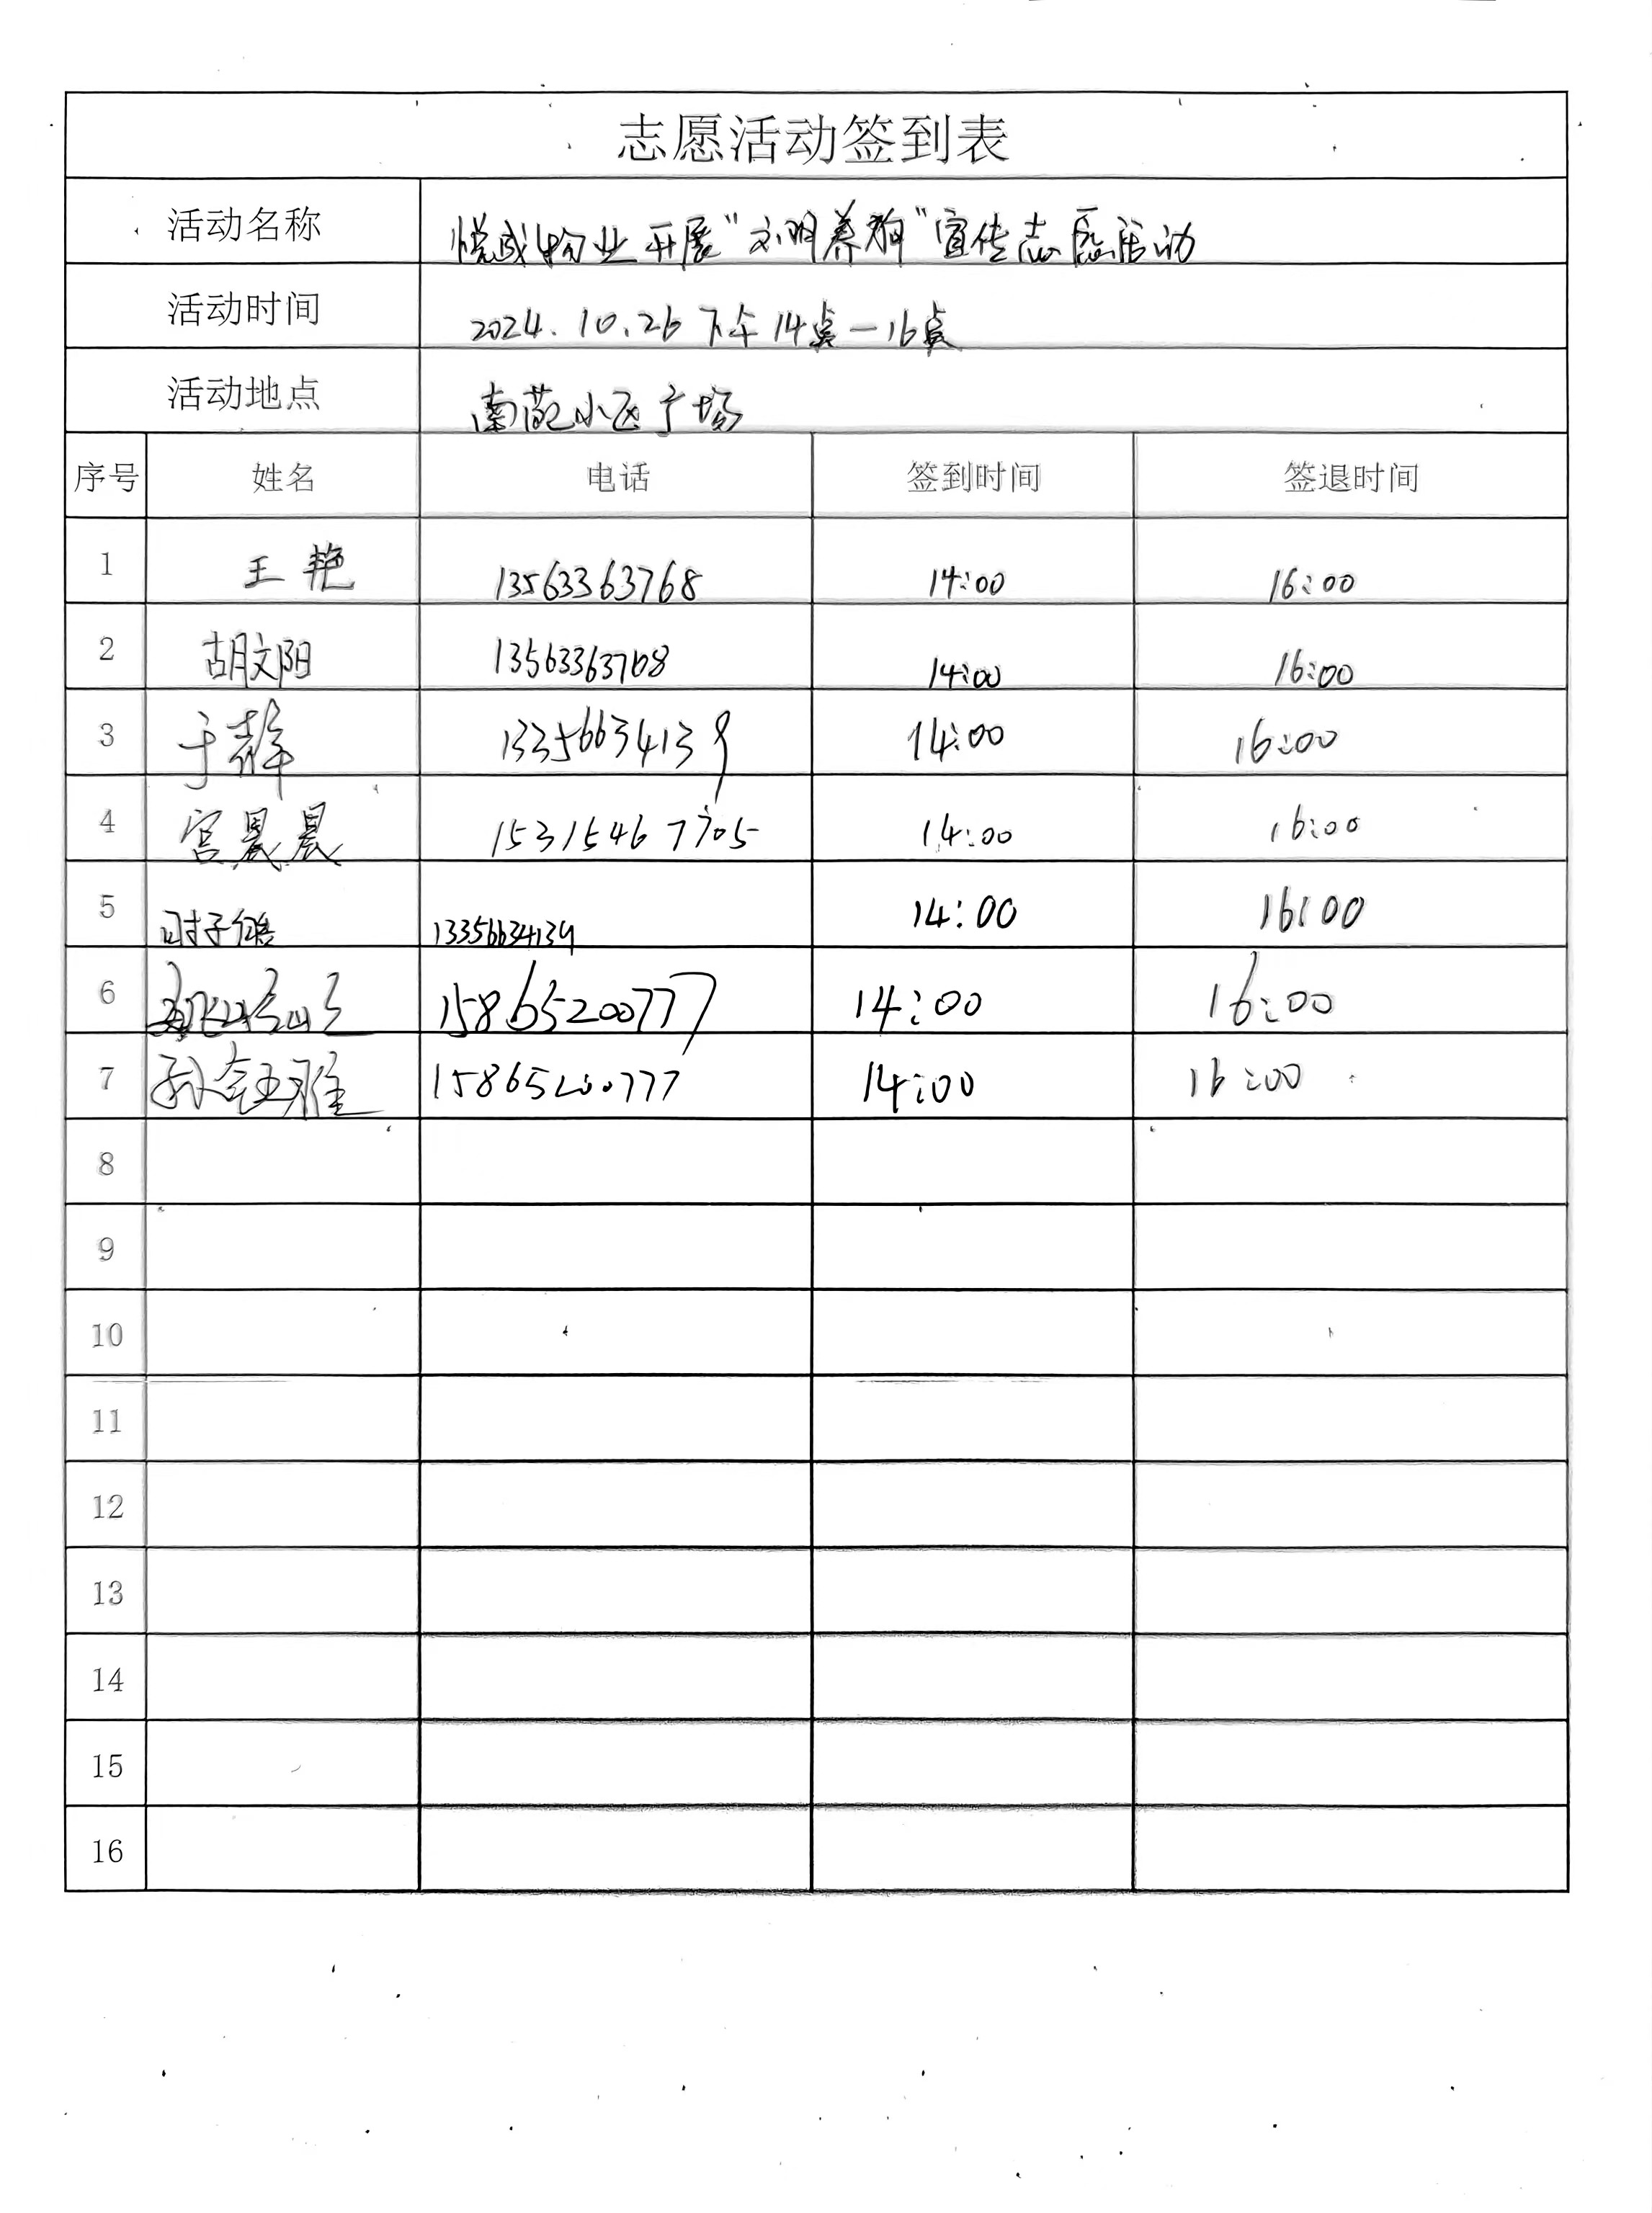 志愿活动签到表
活动名称 悦盛物业开展“文明养狗”宣传志愿活动
活动时间 2024.10.26 下午14点—16点
活动地点 南苑小区广场
序号 姓名 电话 签到时间 签退时间
1 王艳 13563363768 14:00 16:00
2 胡文阳 13563363768 14:00 16:00
3 于静 13356634139 14:00 16:00
4 宫晨晨 15315467705 14:00 16:00
5 时子 13356634139 14:00 16:00
6 15865200777 14:00 16:00
7 孙钰雅 15865200777 14:00 16:00
8
9
10
11
12
13
14
15
16